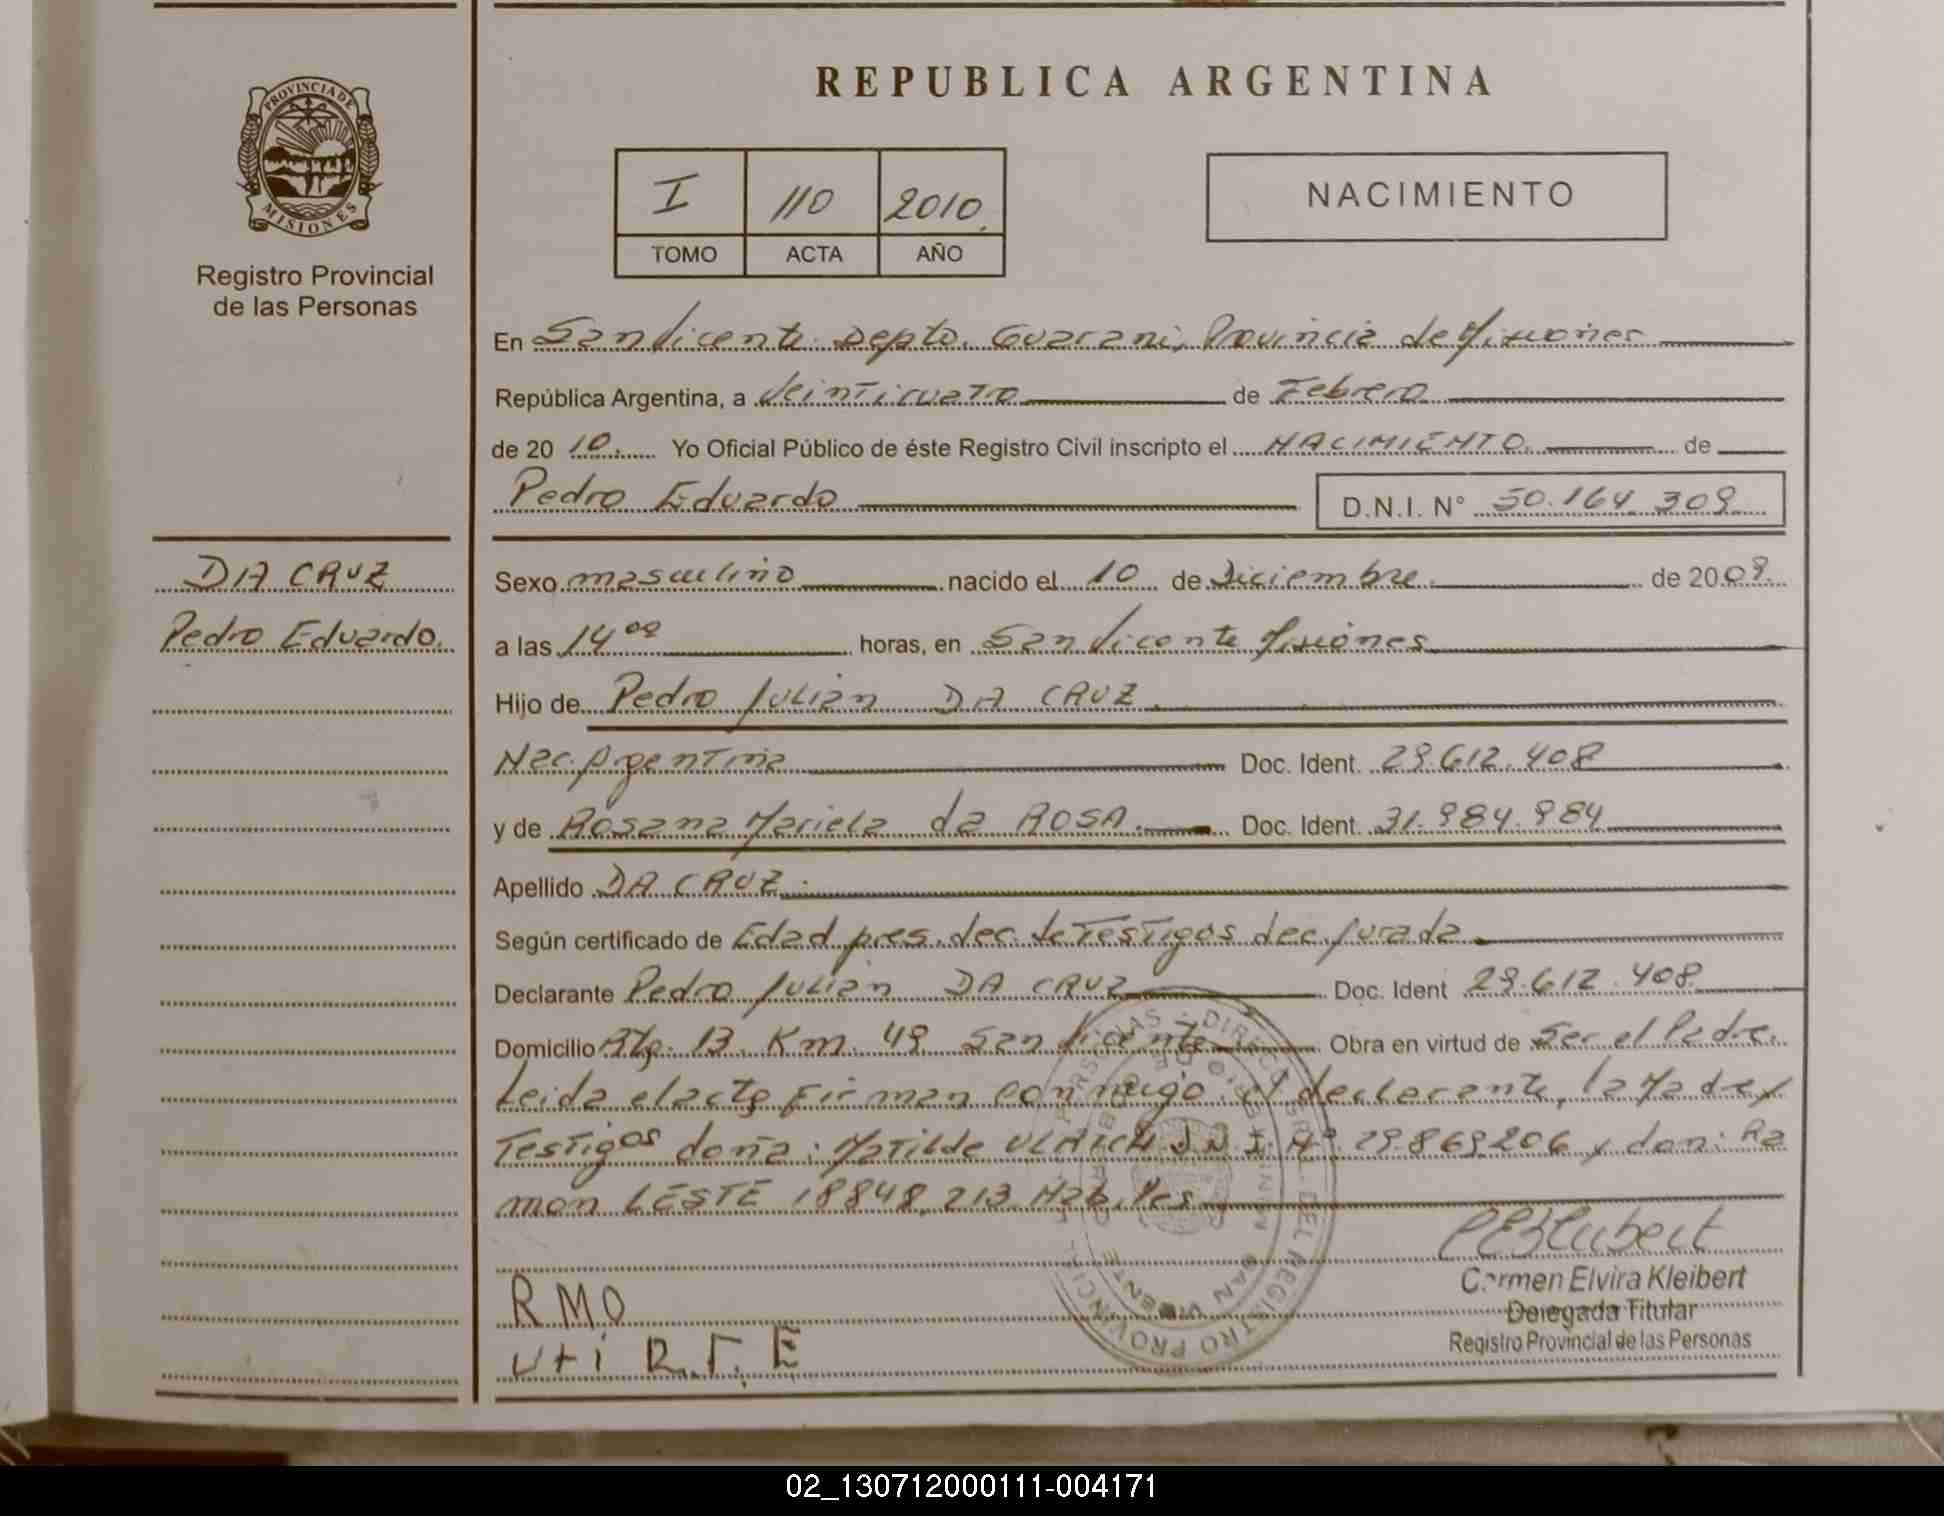 PROVINCIA DE
MISIONES
Registro Provincial
de las Personas
DA CRUZ
Pedro Eduardo.
REPUBLICA ARGENTINA
I 110 2010.
TOMO ACTA AÑO
NACIMIENTO
En San Vicente Depto. Guarani, Provincia de Misiones
República Argentina, a Veinticuatro de Febrero
de 2010. Yo Oficial Público de éste Registro Civil inscripto el NACIMIENTO. de
Pedro Eduardo D.N.I. N° 50.164.309
Sexo masculino nacido el 10 de Diciembre. de 2009.
a las 14 00 horas, en San Vicente Misiones
Hijo de Pedro Julian DA CRUZ.
Nac. Argentina Doc. Ident. 29.612.408
y de Rosana Mariela da ROSA. Doc. Ident. 31.984.984
Apellido DA CRUZ.
Según certificado de Edad pres. dec. de Testigos dec. jurada
Declarante Pedro Julian DA CRUZ Doc. Ident 29.612.408.
Domicilio Rta. 13 Km. 49 San Vicente Obra en virtud de Ser el Padre.
Leida el acta Firman conmigo el declarante, la Madre y
Testigos doña: Matilde ULRICH D.N.I. N° 29.869206 y don: Ra
mon LESTE 18848.213. Hab.
RMO
U+i R.Γ. E
Carmen Elvira Kleibert
Delegada Titular
Registro Provincial de las Personas
02_130712000111-004171